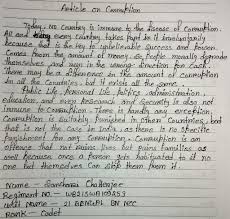 Article on Corruption
Today, No Country is immune to the disease of Corruption.
All and every country takes part in it involuntarily
because that is the key to unbelievable success and power.
Comes from the amount of money. So people morally degrade
themselves and run in the wrong direction for cash.
There may be a difference in the amount of Corruption
in all the countries, but it exists all the same.
Public life, Personal life, politics, administration,
education, and even Research and Security is also not
immune to Corruption. There is hardly any exception.
Corruption is suitably Punished in other Countries, but
that is not the case in India as there is no specific
Punishment for any Corruption. Corruption is an
offence that not ruins lives but ruins families as
well because once a person gets habituated to it no
one but themselves can stop them from it.
Name - Chatterjee
Regiment no. -
Unit Name - 21 BENGAL BN NCC
Rank - Cadet